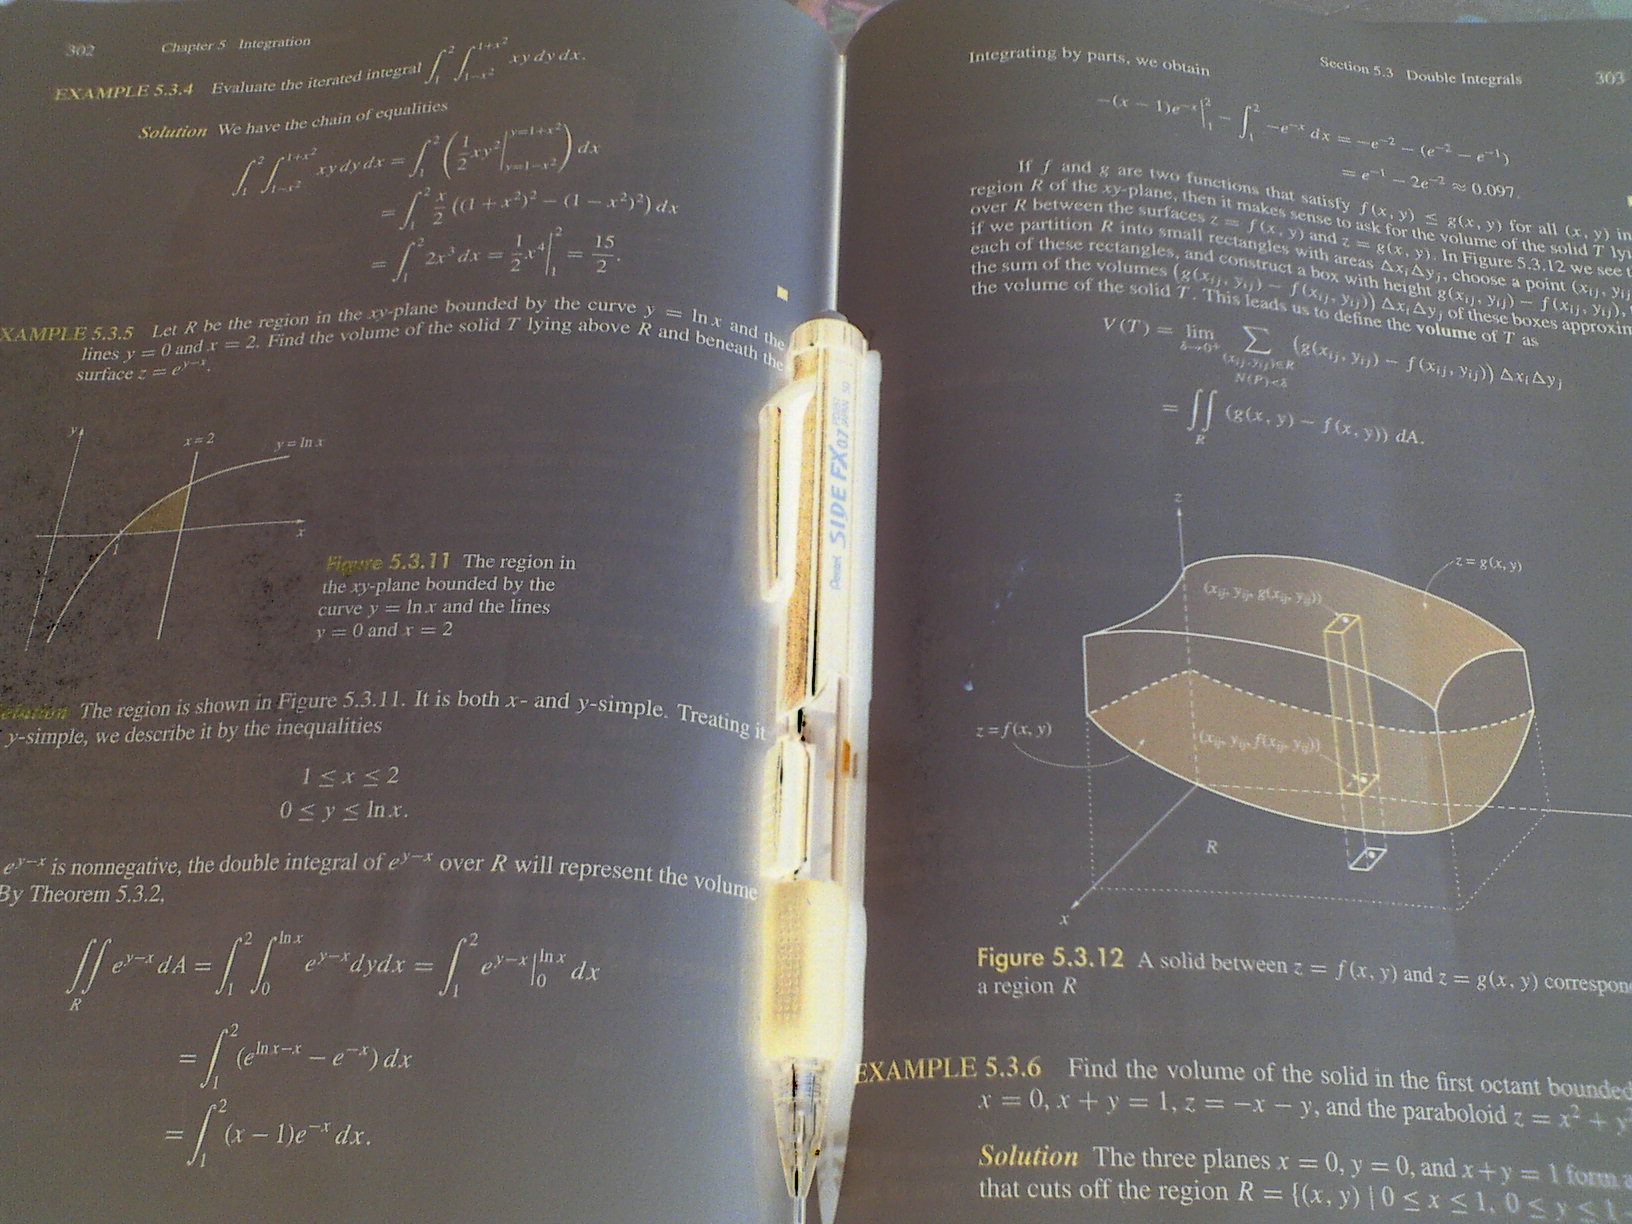 302 Chapter 5 Integration
EXAMPLE 5.3.4 Evaluate the iterated integral ∫₁² ∫_{1−x²}^{1+x²} xy dy dx.
Solution We have the chain of equalities
∫₁² ∫_{1−x²}^{1+x²} xy dy dx = ∫₁² (½xy² |_{y=1−x²}^{y=1+x²}) dx
= ∫₁² x/2 ((1 + x²)² − (1 − x²)²) dx
= ∫₁² 2x³ dx = ½x⁴ |₁² = 15/2.
XAMPLE 5.3.5 Let R be the region in the xy-plane bounded by the curve y = ln x and the
lines y = 0 and x = 2. Find the volume of the solid T lying above R and beneath the
surface z = e^{y−x}.
y
x = 2
y = ln x
1
x
Figure 5.3.11 The region in
the xy-plane bounded by the
curve y = ln x and the lines
y = 0 and x = 2
The region is shown in Figure 5.3.11. It is both x- and y-simple. Treating it
y-simple, we describe it by the inequalities
1 ≤ x ≤ 2
0 ≤ y ≤ ln x.
e^{y−x} is nonnegative, the double integral of e^{y−x} over R will represent the volume
By Theorem 5.3.2,
∬_R e^{y−x} dA = ∫₁² ∫₀^{ln x} e^{y−x} dydx = ∫₁² e^{y−x} |₀^{ln x} dx
= ∫₁² (e^{ln x−x} − e^{−x}) dx
= ∫₁² (x − 1)e^{−x} dx.
Pentel SIDE FX 0.7
Section 5.3 Double Integrals 303
Integrating by parts, we obtain
−(x − 1)e^{−x} |₁² − ∫₁² −e^{−x} dx = −e^{−2} − (e^{−2} − e^{−1})
= e^{−1} − 2e^{−2} ≈ 0.097.
If f and g are two functions that satisfy f(x, y) ≤ g(x, y) for all (x, y) in
region R of the xy-plane, then it makes sense to ask for the volume of the solid T lyi
over R between the surfaces z = f(x, y) and z = g(x, y). In Figure 5.3.12 we see t
if we partition R into small rectangles with areas Δx_iΔy_j, choose a point (x_{ij}, y_{ij}
each of these rectangles, and construct a box with height g(x_{ij}, y_{ij}) − f(x_{ij}, y_{ij}),
the sum of the volumes (g(x_{ij}, y_{ij}) − f(x_{ij}, y_{ij})) Δx_iΔy_j of these boxes approxim
the volume of the solid T. This leads us to define the volume of T as
V(T) = lim_{δ→0⁺} ∑_{(x_{ij}, y_{ij})∈R, N(P)<δ} (g(x_{ij}, y_{ij}) − f(x_{ij}, y_{ij})) Δx_iΔy_j
= ∬_R (g(x, y) − f(x, y)) dA.
z
z = g(x, y)
(x_{ij}, y_{ij}, g(x_{ij}, y_{ij}))
z = f(x, y)
(x_{ij}, y_{ij}, f(x_{ij}, y_{ij}))
R
x
Figure 5.3.12 A solid between z = f(x, y) and z = g(x, y) correspon
a region R
EXAMPLE 5.3.6 Find the volume of the solid in the first octant bounded
x = 0, x + y = 1, z = −x − y, and the paraboloid z = x² + y
Solution The three planes x = 0, y = 0, and x + y = 1 form a
that cuts off the region R = {(x, y) | 0 ≤ x ≤ 1, 0 ≤ y ≤ 1 −